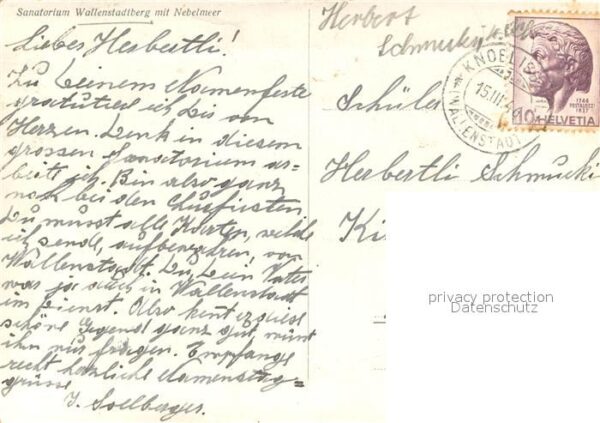 Sanatorium Wallenstadtberg mit Nebelmeer
Liebes Herbertli!
Zu Deinem Namensfeste
gratuliere ich Dir von
Herzen. Denk in diesem
grossen Sanatorium ar-
beite ich. Bin also ganz
nah bei den Churfirsten.
Du musst alle Karten, welche
ich sende, aufbewahren, von
Wallenstadt. Du, Dein Vater
war ja auch in Wallenstadt
im Dienst. Also kennt er diese
schöne Gegend ganz gut, musst
ihn nur fragen. Empfange
recht herzliche Namenstag=
grüsse
J. Solberger.
Herbert
Schmucki
Schüler
Herbertli Schmucki
Ki
KNOBL
15.III.4
(WALLENSTADT)
1746
PESTALOZZI
1827
10 HELVETIA
privacy protection
Datenschutz